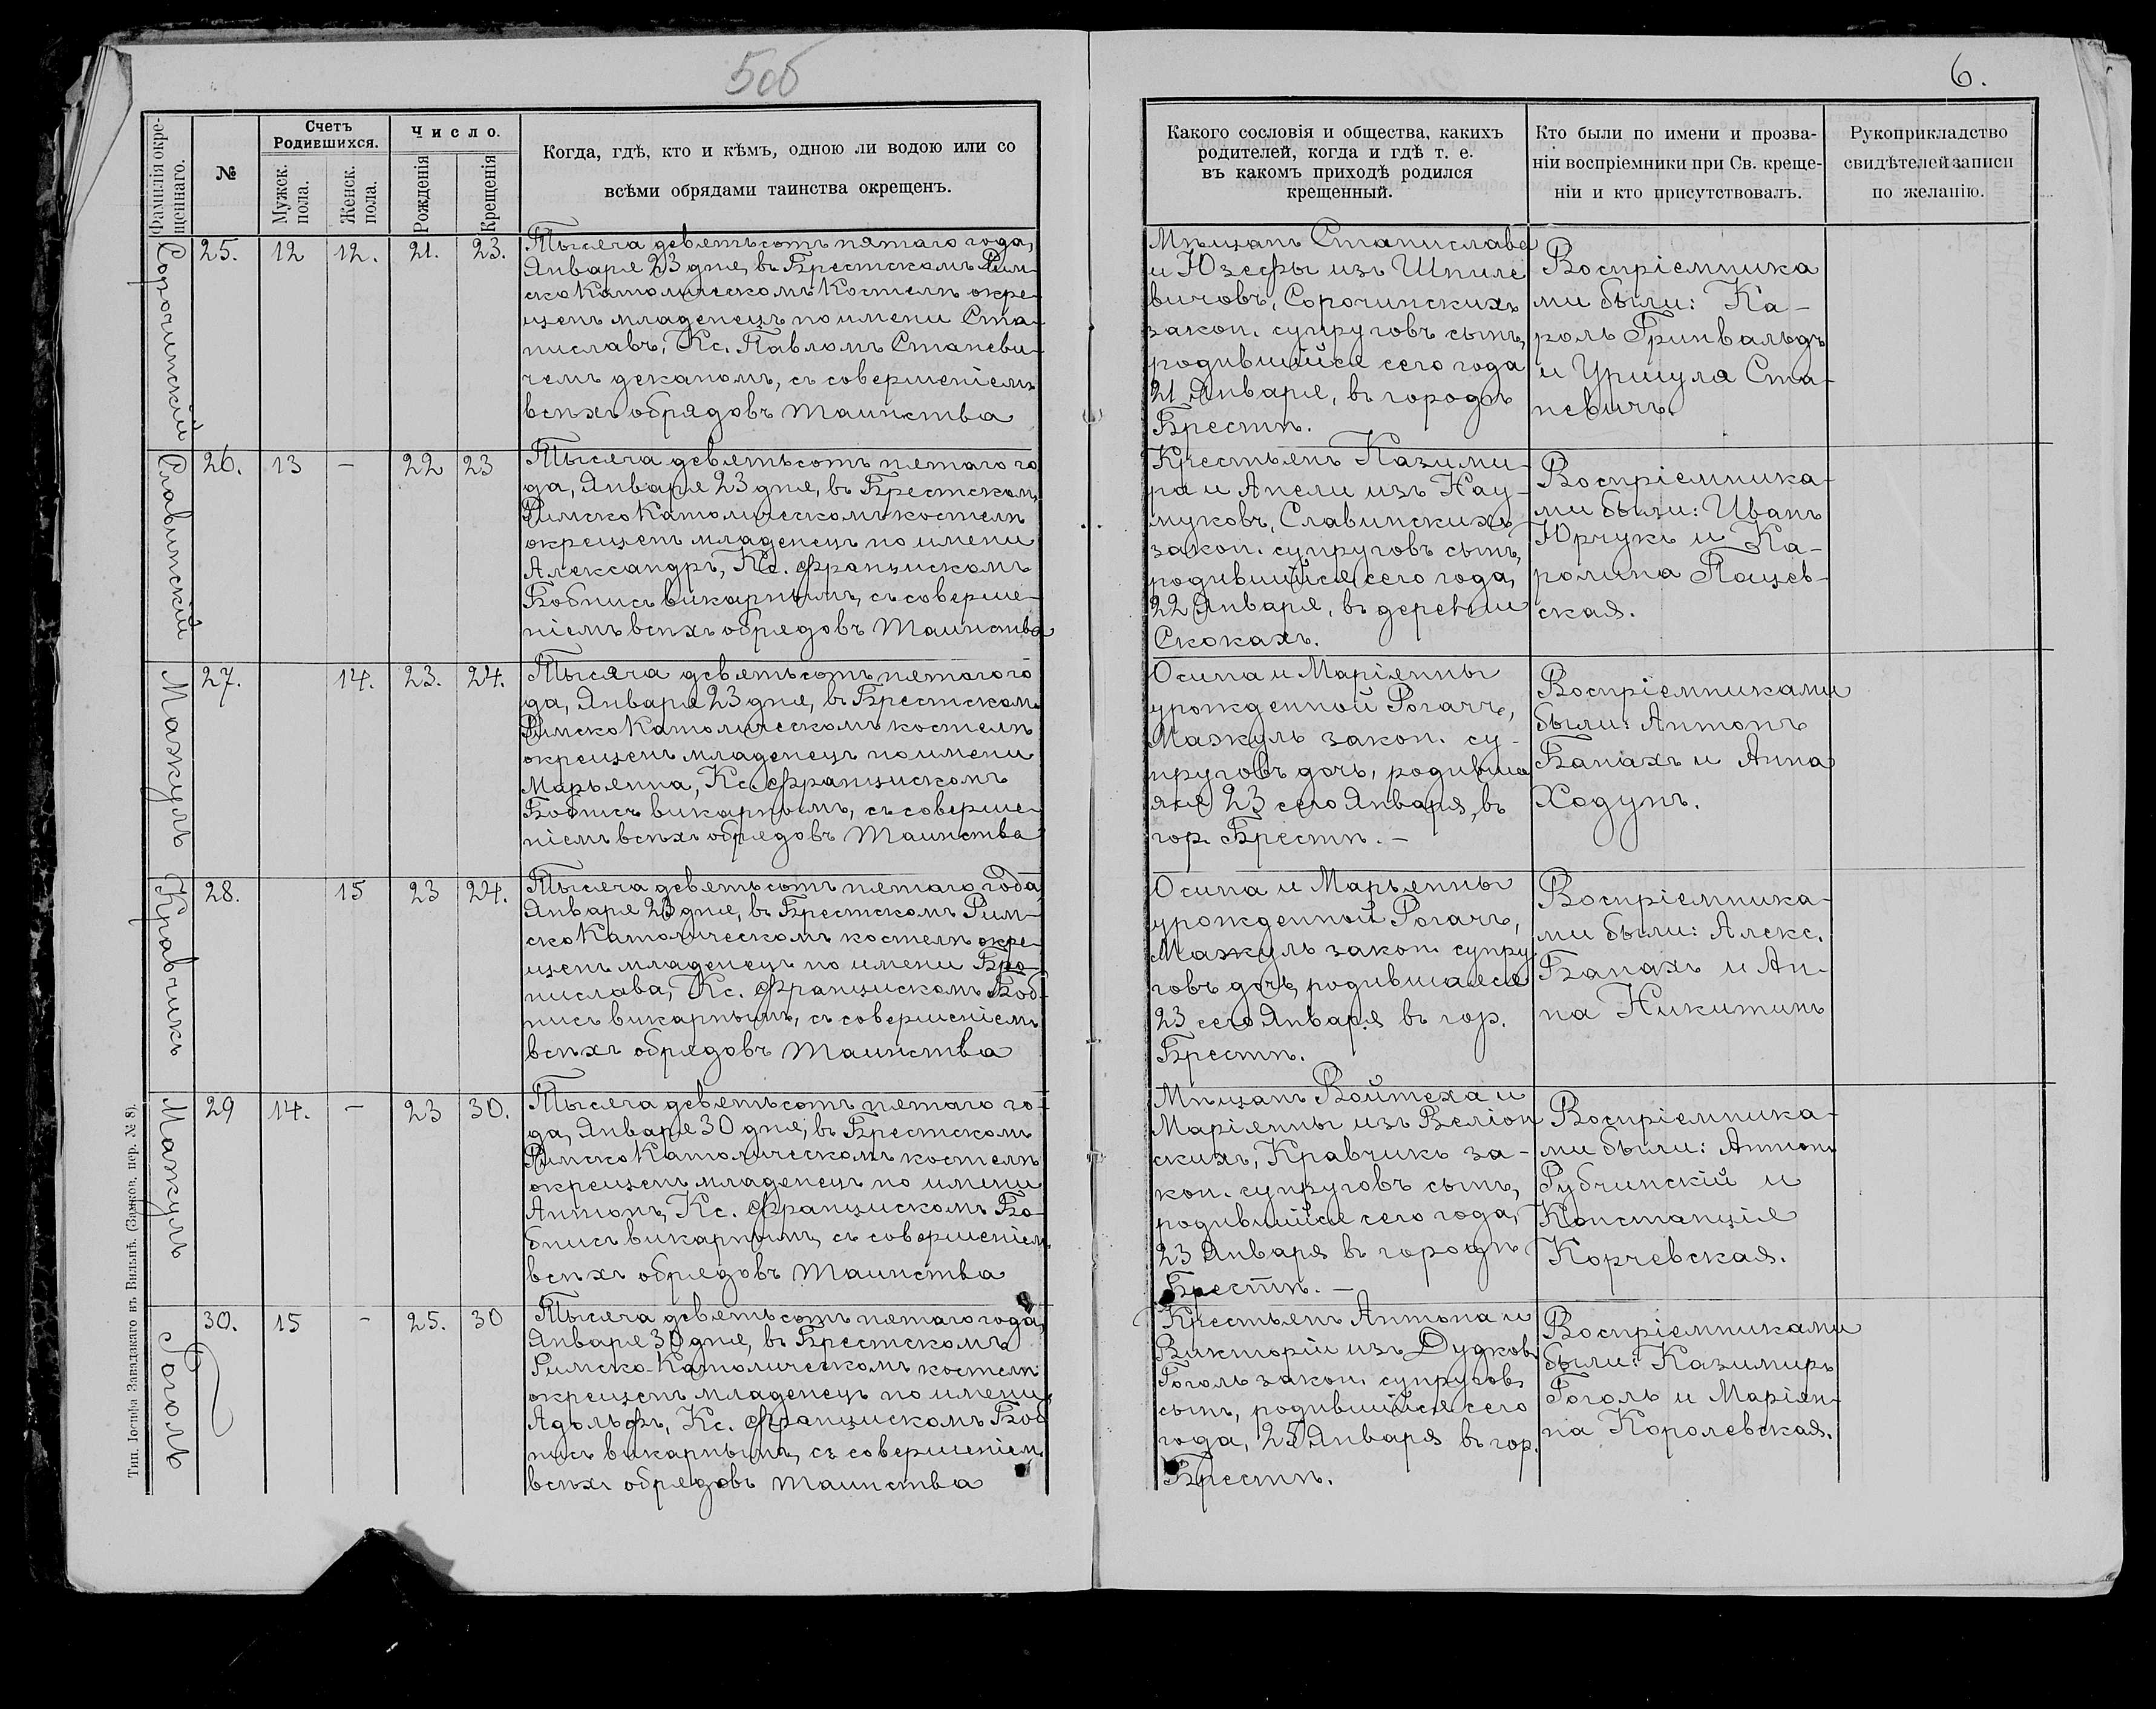 5об
6.
Фамилія окре-
щеннаго.
№
Счетъ
Родившихся.
Мужск.
пола.
Женск.
пола.
Число.
Рожденія
Крещенія
Когда, гдѣ, кто и кѣмъ, одною ли водою или со
всѣми обрядами таинства окрещенъ.
Какого сословія и общества, какихъ
родителей, когда и гдѣ т. е.
въ какомъ приходѣ родился
крещенный.
Кто были по имени и прозва-
ніи воспріемники при Св. креще-
ніи и кто присутствовалъ.
Рукоприкладство
свидѣтелей записи
по желанію.
Сорочинскій
25. 12 12. 21. 23.
Тысяча девятьсотъ пятаго года,
Января 23 дня, въ Брестскомъ Рим-
ско Католическомъ Костелѣ окре-
щенъ младенецъ по имени Ста-
ниславъ, Кс. Павломъ Станеви-
чемъ деканомъ, съ совершеніемъ
всѣхъ обрядовъ таинства
Мѣщанъ Станислава
и Юзефы изъ Шпиле
вичовъ, Сорочинскихъ
закон. супруговъ сынъ,
родившійся сего года
21 Января, въ городѣ
Брестѣ.
Воспріемника
ми были: Ка-
роль Гринвальдъ
и Уршуля Ста-
невичъ.
Славинскій
26. 13 — 22 23
Тысяча девятьсотъ пятаго го
да, Января 23 дня, въ Брестскомъ
Римско Католическомъ костелѣ
окрещенъ младенецъ по имени
Александръ, Кс. Францискомъ
Бобнисъ викарнымъ, съ соверше-
ніемъ всѣхъ обрядовъ Таинства
Крестьянъ Казими-
ра и Анели изъ Нау-
муковъ, Славинскихъ
закон. супруговъ сынъ,
родившійся сего года,
22 Января, въ деревни
Скокахъ.
Воспріемника-
ми были: Иванъ
Юрчукъ и Ка-
ролина Пацев-
ская.
Мажуль
27. 14. 23. 24.
Тысяча девятьсотъ пятаго го
да, Января 23 дня, въ Брестскомъ
Римско Католическомъ костелѣ
окрещенъ младенецъ по имени
Марьянна, Кс. Францискомъ
Бобнисъ викарнымъ, съ соверше-
ніемъ всѣхъ обрядовъ Таинства
Осипа и Маріянны
урожденной Рогачъ,
Мажуль закон. су-
пруговъ дочь, родивша
яся 23 сего Января, въ
гор. Брестѣ. —
Воспріемниками
были: Антонъ
Банахъ и Анна
Ходунъ.
Кравчикъ
28. 15 23 24.
Тысяча девятьсотъ пятаго года,
Января 23 дня, въ Брестскомъ Рим-
ско Католическомъ костелѣ окре-
щенъ младенецъ по имени Бро-
нислава, Кс. Францискомъ Боб-
нисъ викарнымъ, съ совершеніемъ
всѣхъ обрядовъ Таинства
Осипа и Марьянны
урожденной Рогачъ,
Мажуль закон. супру
говъ дочь, родившаяся
23 сего Января въ гор.
Брестѣ.
Воспріемника-
ми были: Алекс.
Банахъ и Ан-
на Никитинъ
Мажуль
29 14. — 23 30.
Тысяча девятьсотъ пятаго го-
да, Января 30 дня, въ Брестскомъ
Римско Католическомъ костелѣ
окрещенъ младенецъ по имени
Антонъ, Кс. Францискомъ Бо-
бнисъ викарнымъ, съ совершеніем.
всѣхъ обрядовъ Таинства
Мѣщанъ Войтеха и
Маріянны изъ Веліон
скихъ, Кравчикъ за-
кон. супруговъ сынъ,
родившійся сего года,
23 Января въ городѣ
Брестѣ. —
Воспріемника-
ми были: Антонъ
Рубчинскій и
Констанція
Корчевская.
Гоголь
30. 15 - 25. 30
Тысяча девятьсотъ пятаго года,
Января 30 дня, въ Брестскомъ
Римско-Католическомъ костелѣ
окрещенъ младенецъ по имени
Адольфъ, Кс. Францискомъ Боб
нисъ викарнымъ, съ совершеніем.
всѣхъ обрядовъ таинства
Крестьянъ Антона и
Викторіи изъ Дудковъ
Гоголь закон. супруговъ
сынъ, родившійся сего
года, 25 Января въ гор.
Брестѣ.
Воспріемниками
были: Казимиръ
Гоголь и Маріян-
на Королевская.
Тип. Іосифа Завадзкаго въ Вильнѣ. (Замков. пер. № 8).